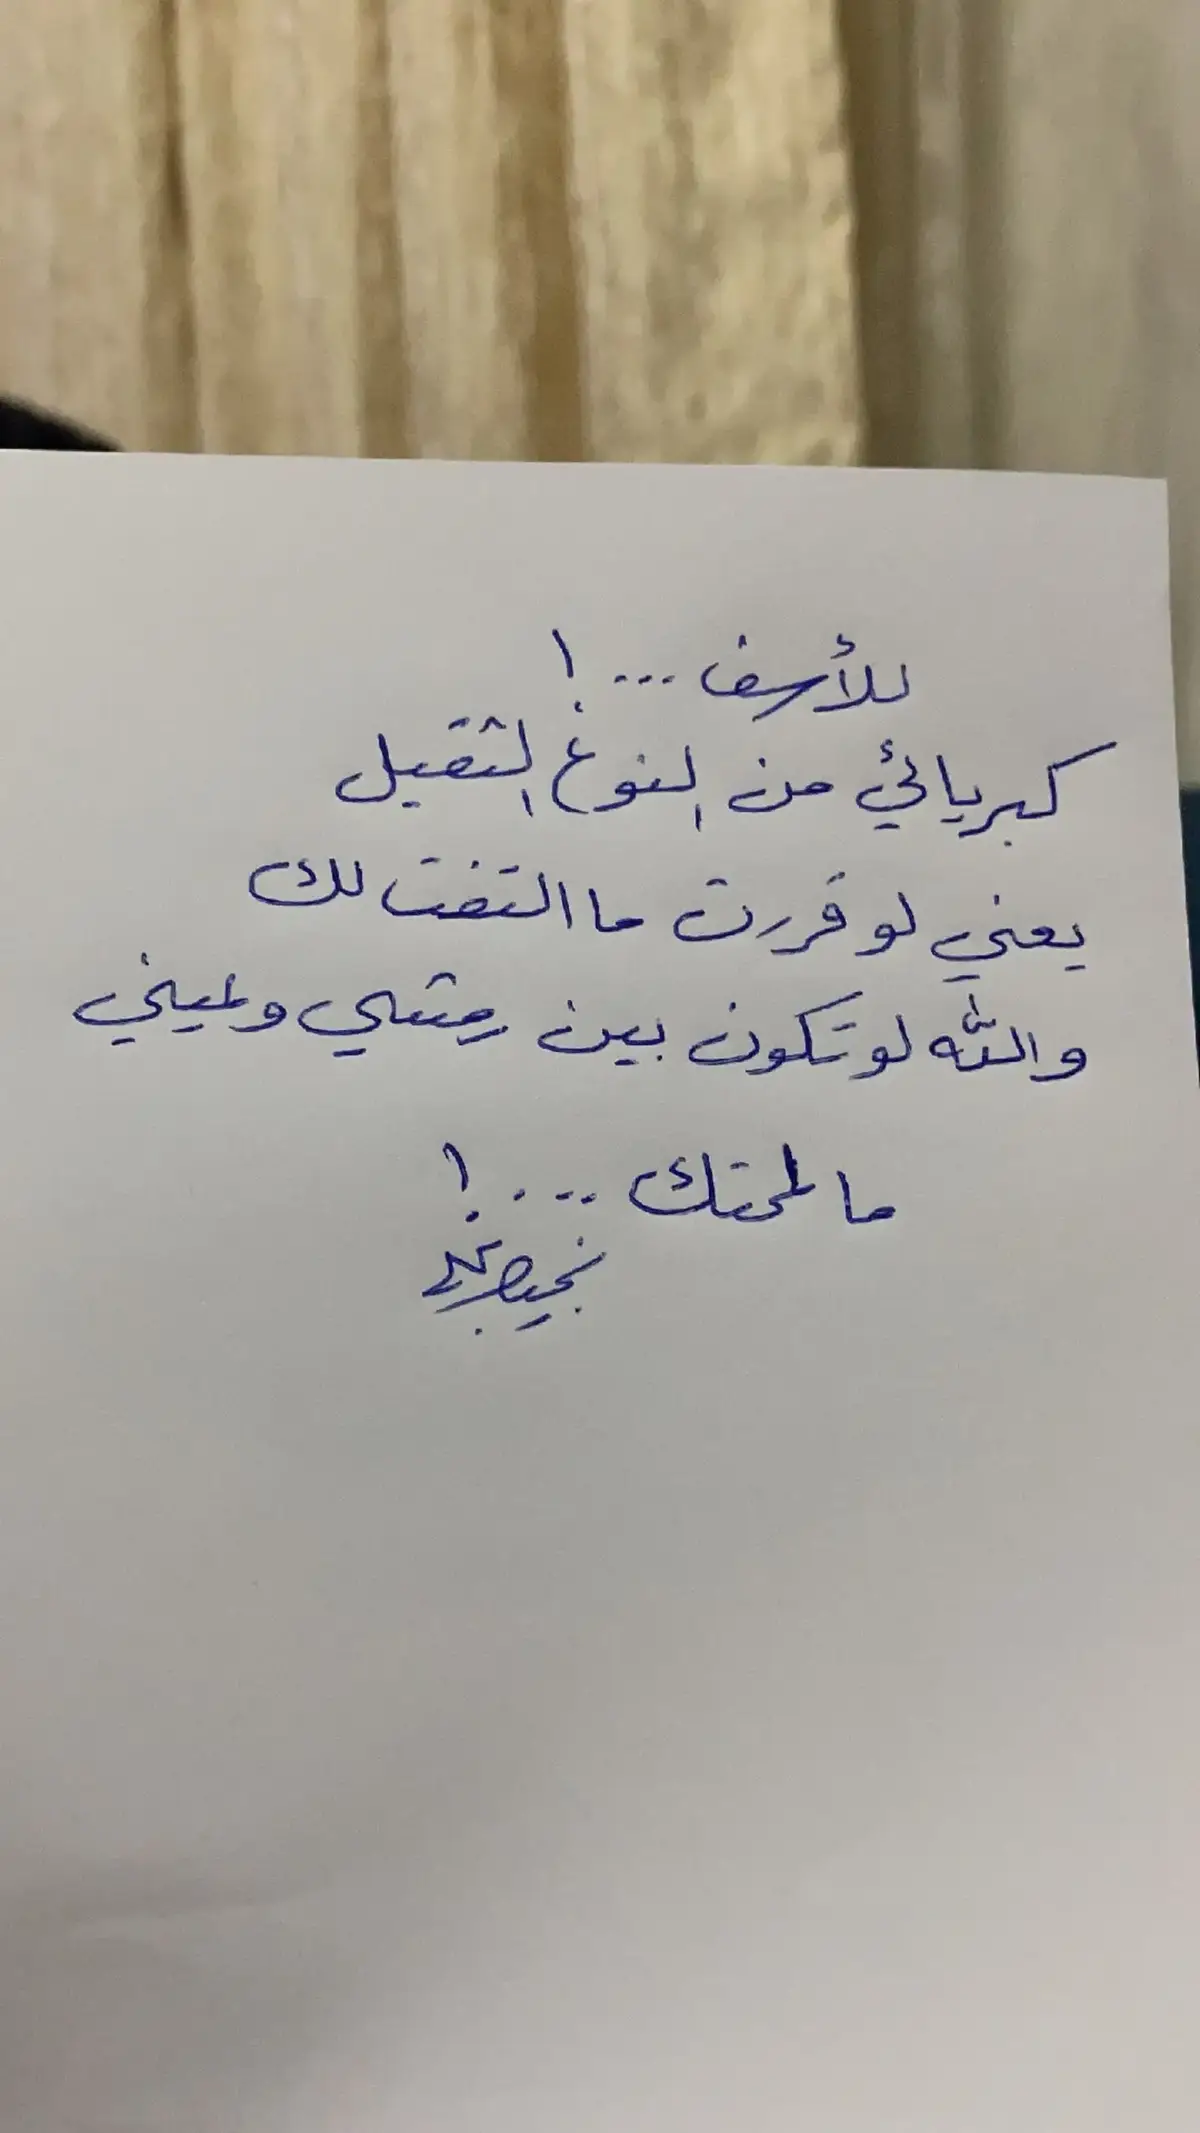 للأسف ...!
كبريائي من النوع الثقيل
يعني لو قررت ما التفت لك
والله لو تكون بين رمشي وعيني
ما لمحتك ...!